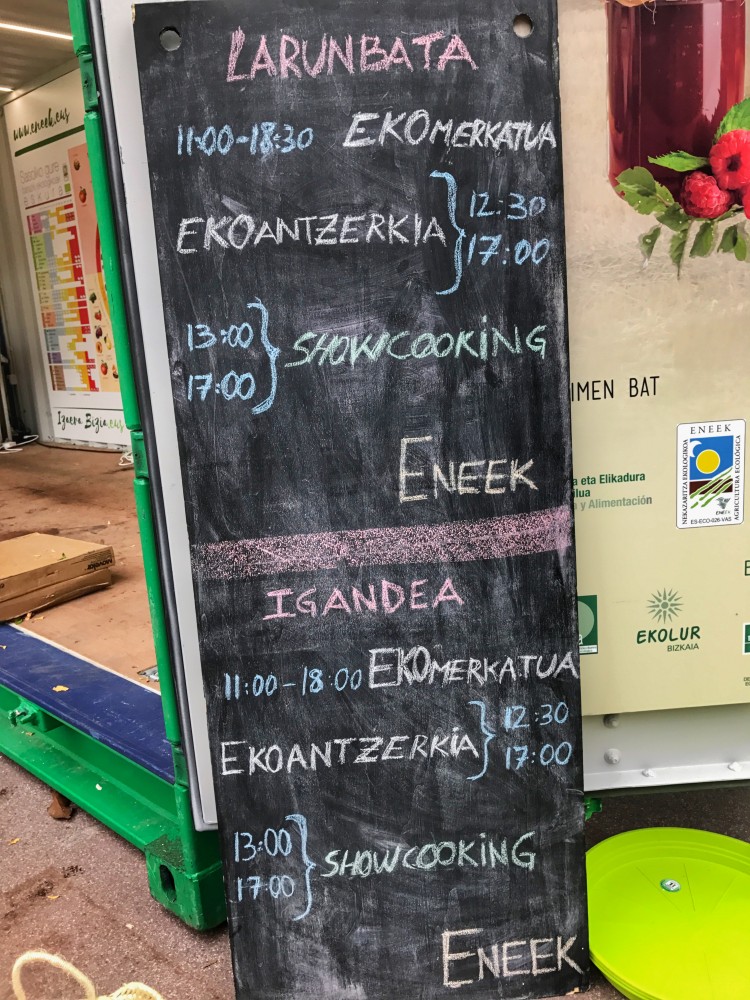 LARUNBATA
11:00-18:30 EKOMERKATUA
EKOANTZERKIA } 12:30
17:00
13:00
17:00 } SHOWCOOKING
ENEEK
IGANDEA
11:00-18:00 EKOMERKATUA
EKOANTZERKIA } 12:30
17:00
13:00
17:00 } SHOWCOOKING
ENEEK
www.eneek.eus
Izaera Bizia.eus
IMEN BAT
a eta Elikadura
ilua
a y Alimentación
ENEEK
NEKAZARITZA EKOLOGIKOA
AGRICULTURA ECOLÓGICA
ENEEK
ES-ECO-026-VAS
EKOLUR
BIZKAIA